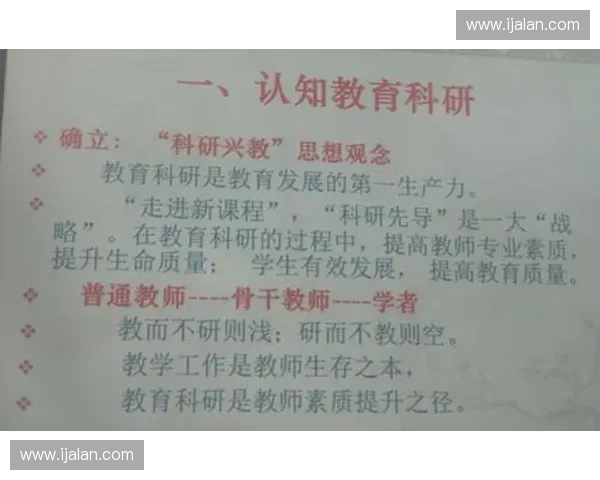 www.ijalan.com
一、认知教育科研
❖ 确立：“科研兴教”思想观念
❖ 教育科研是教育发展的第一生产力。
❖ “走进新课程”，“科研先导”是一大“战
略”。在教育科研的过程中，提高教师专业素质，
提升生命质量； 学生有效发展， 提高教育质量。
❖ 普通教师----骨干教师----学者
❖ 教而不研则浅；研而不教则空。
❖ 教学工作是教师生存之本，
❖ 教育科研是教师素质提升之径。
www.ijalan.com